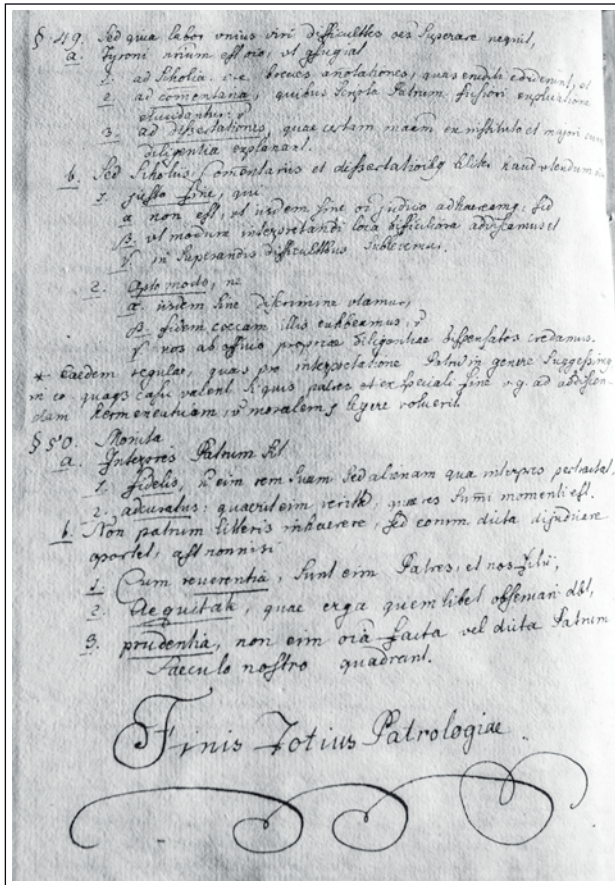 § 49. Sed quia labor unius viri difficultes oes superare nequit,
a. Tyroni nrium est oio, ut gfugiat
1. ad Scholia i.e. breves anotationes, quas eruditi ediderunt, et
2. ad comentaria, quibus scripta Patrum fusiori explicatione
elucidantur: &
3. ad dissertationes, quae certam maem ex instituto et majori cum
diligentia explanant.
b. Sed Scholiis, Comentariis et dissertatioibq haud utendum
1. justo fine, qui
α non est, ut iisdem sine oi judicio adhaereamq; sed
β. ut modum interpretandi loca difficiliora addiscamus et
γ in superandis difficultbus
2. Apto modo, ne
α. iisdem sine discrimine utamur,
β. fidem coecam illis exhibeamus, &
γ nos ab officio propriae diligentiae dispensatos credamus.
* Eaedem regulae, quas pro interpretatione Patrum in genere
in eo quoqs casu valent, si quis patres et ex speciali fine v.g. ad addiscen-
dam hermeneuticam, & moralem legere voluerit.
§ 50. Monita
a. Interpres Patrum sit
1. fidelis, n eim rem suam sed alienam qua interpres pertractat,
2. adcuratus: quaerit eim veritt: quae res sumi momenti est.
b. Non patrum litteris inhaerere, sed eorum dicta dijudicare
oportet, ast nonnisi
1. Cum reverentia, sunt eim Patres, et nos filii,
2. Aequitate, quae erga quemlibet observari dbt,
3. prudentia, non eim oia facta vel dicta Patrum
saeculo nostro quadrant.
Finis Totius Patrologiae.